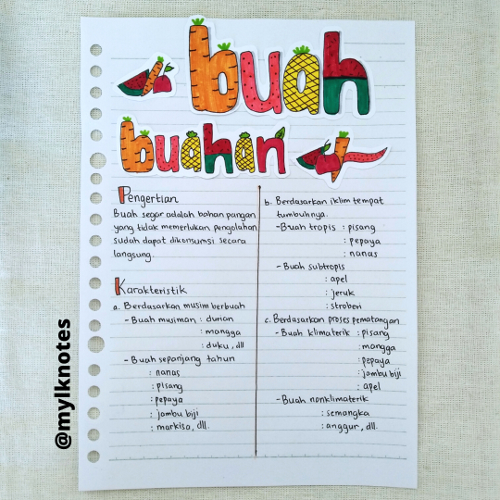 buah
buahan
Pengertian
Buah segar adalah bahan pangan
yang tidak memerlukan pengolahan
sudah dapat dikonsumsi secara
langsung.
Karakteristik
a. Berdasarkan musim berbuah
- Buah musiman : durian
: mangga
: duku, dll
- Buah sepanjang tahun
: nanas
: pisang
: pepaya
: jambu biji
: markisa, dll.
b. Berdasarkan iklim tempat
tumbuhnya.
- Buah tropis : pisang
: pepaya
: nanas
- Buah subtropis
: apel
: jeruk
: stroberi
c. Berdasarkan proses pematangan
- Buah klimaterik : pisang
: mangga
: pepaya
: jambu biji
: apel
- Buah nonklimaterik
: semangka
: anggur, dll.
@mylknotes